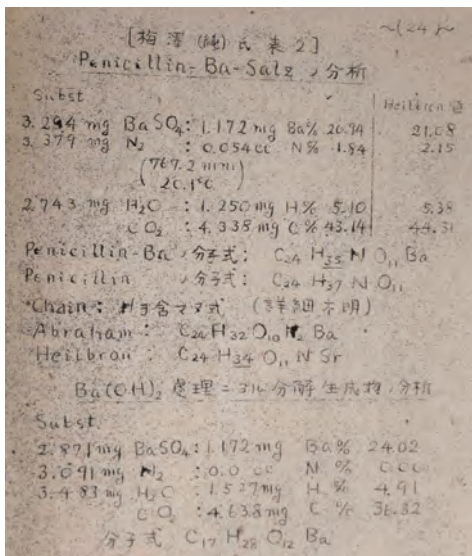 ~(24)~
[梅澤(純)氏表2]
Penicillin-Ba-Salz ノ分析
Subst Heilbron 値
3.294 mg BaSO₄: 1.172 mg Ba% 20.94 21.08
3.379 mg N₂ : 0.054cc N% 1.84 2.15
(767.2 mm
20.1°C)
2.743 mg H₂O : 1.250 mg H% 5.10 5.38
CO₂ : 4.338 mg C% 43.14 44.31
Penicillin-Ba ノ分子式: C₂₄ H₃₅ N O₁₁ Ba
Penicillin ノ分子式: C₂₄ H₃₇ N O₁₁
Chain: Nヲ含マヌ式 (詳細不明)
Abraham: C₂₄ H₃₂ O₁₀ N₂ Ba
Heilbron: C₂₄ H₃₄ O₁₁ N Sr
Ba(OH)₂ 處理ニヨル分解生成物ノ分析
Subst.
2.871 mg BaSO₄: 1.172 mg Ba% 24.02
3.091 mg N₂ : 0.0 cc N.% 0.00
3.483 mg H₂O : 1.527 mg H.% 4.91
CO₂ : 4.638 mg C % 36.32
分子式 C₁₇ H₂₈ O₁₂ Ba